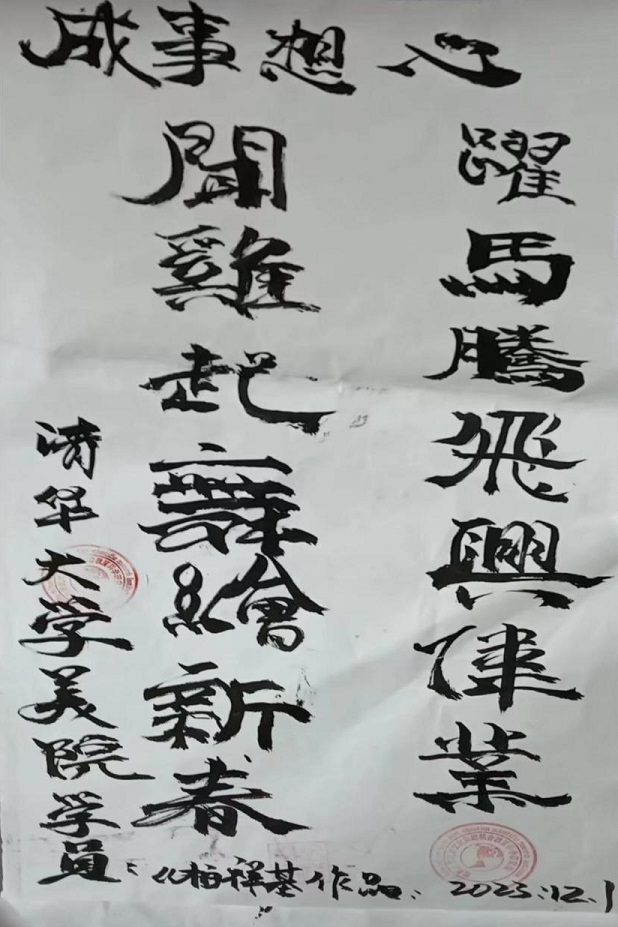 心想事成
躍馬騰飛興偉業
聞雞起舞繪新春
清华大学美院学員：
柏祥基作品. 2025.12.1